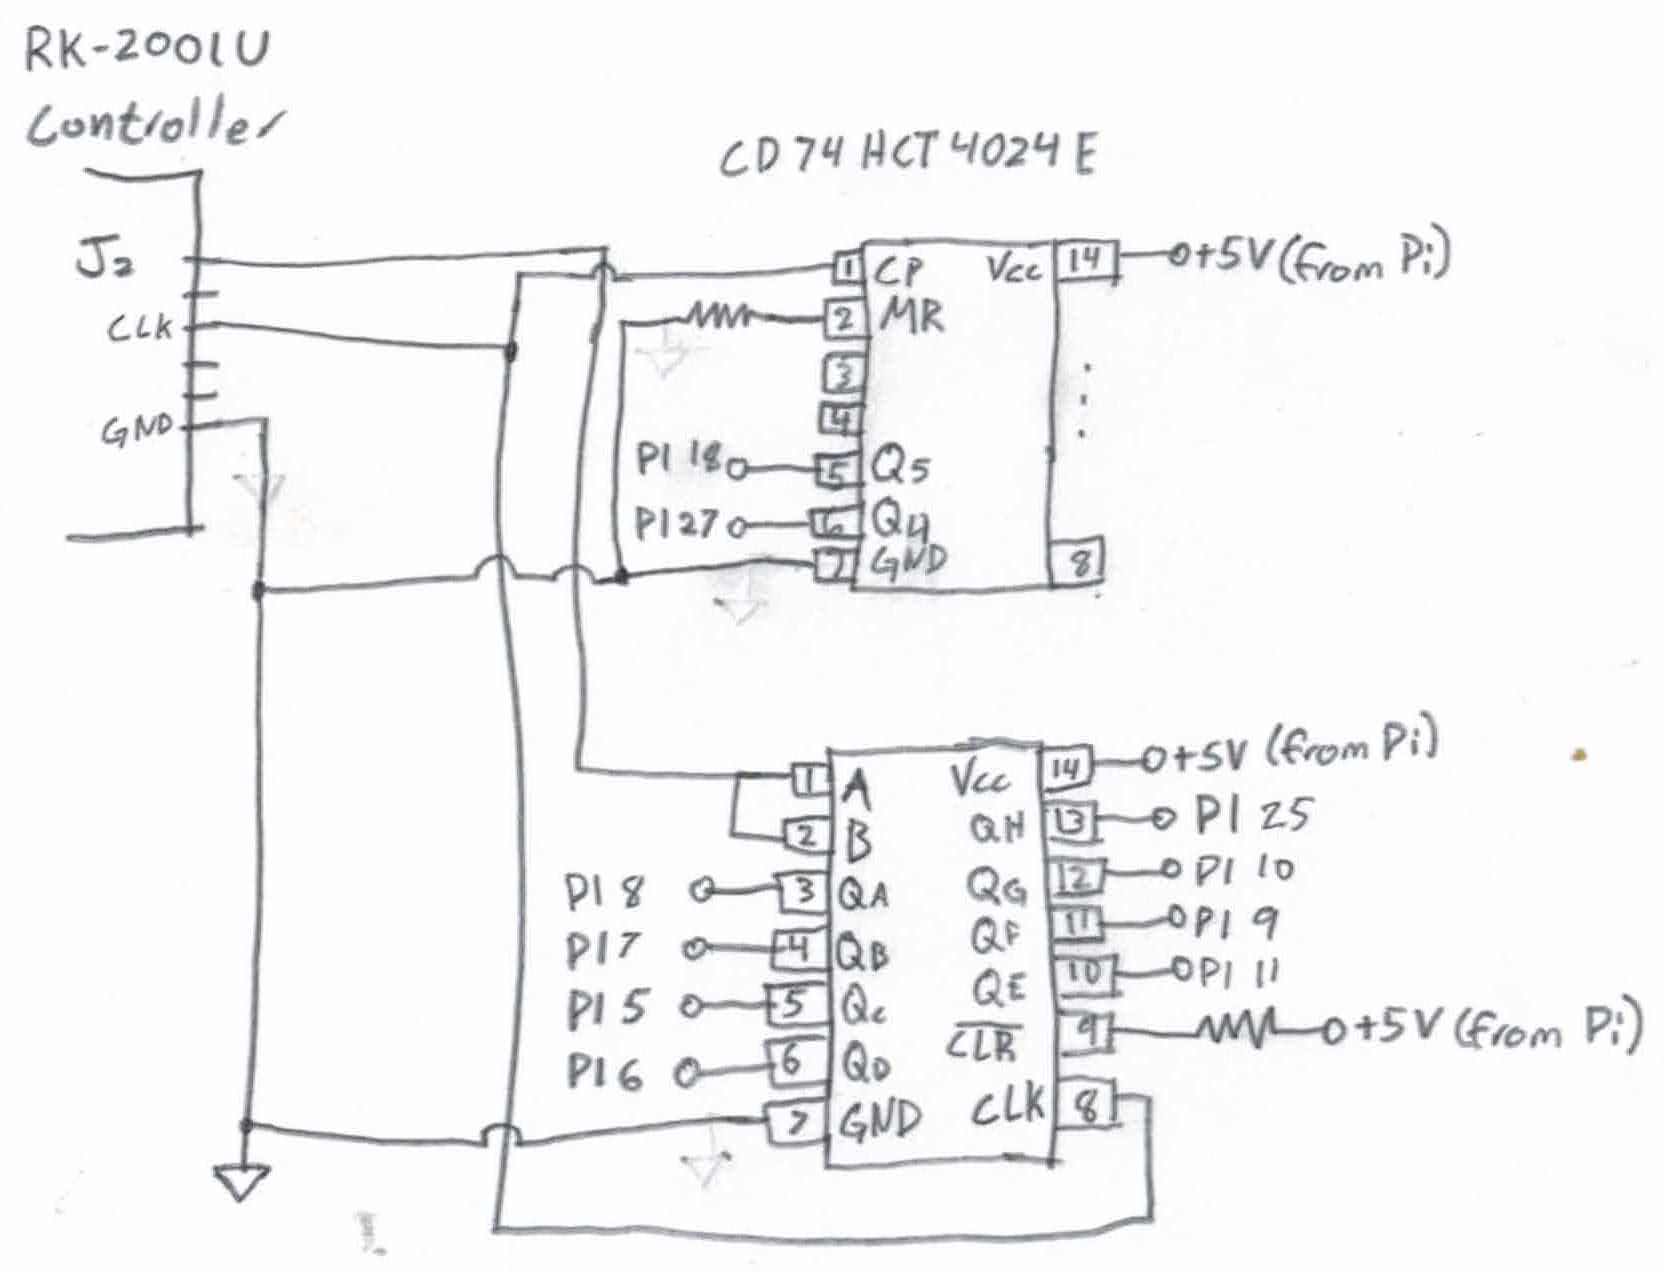 RK-2001U
Controller
CD74HCT4024E
J2
CLK
GND
1 CP
2 MR
3
4
PI 18 5 Q5
PI 27 6 Q4
7 GND
Vcc 14 +5V (from Pi)
8
1 A
2 B
PI 8 3 QA
PI 7 4 QB
PI 5 5 Qc
PI 6 6 QD
7 GND
Vcc 14 +5V (from Pi)
QH 13 PI 25
QG 12 PI 10
QF 11 PI 9
QE 10 PI 11
CLR 9 +5V (from Pi)
CLK 8